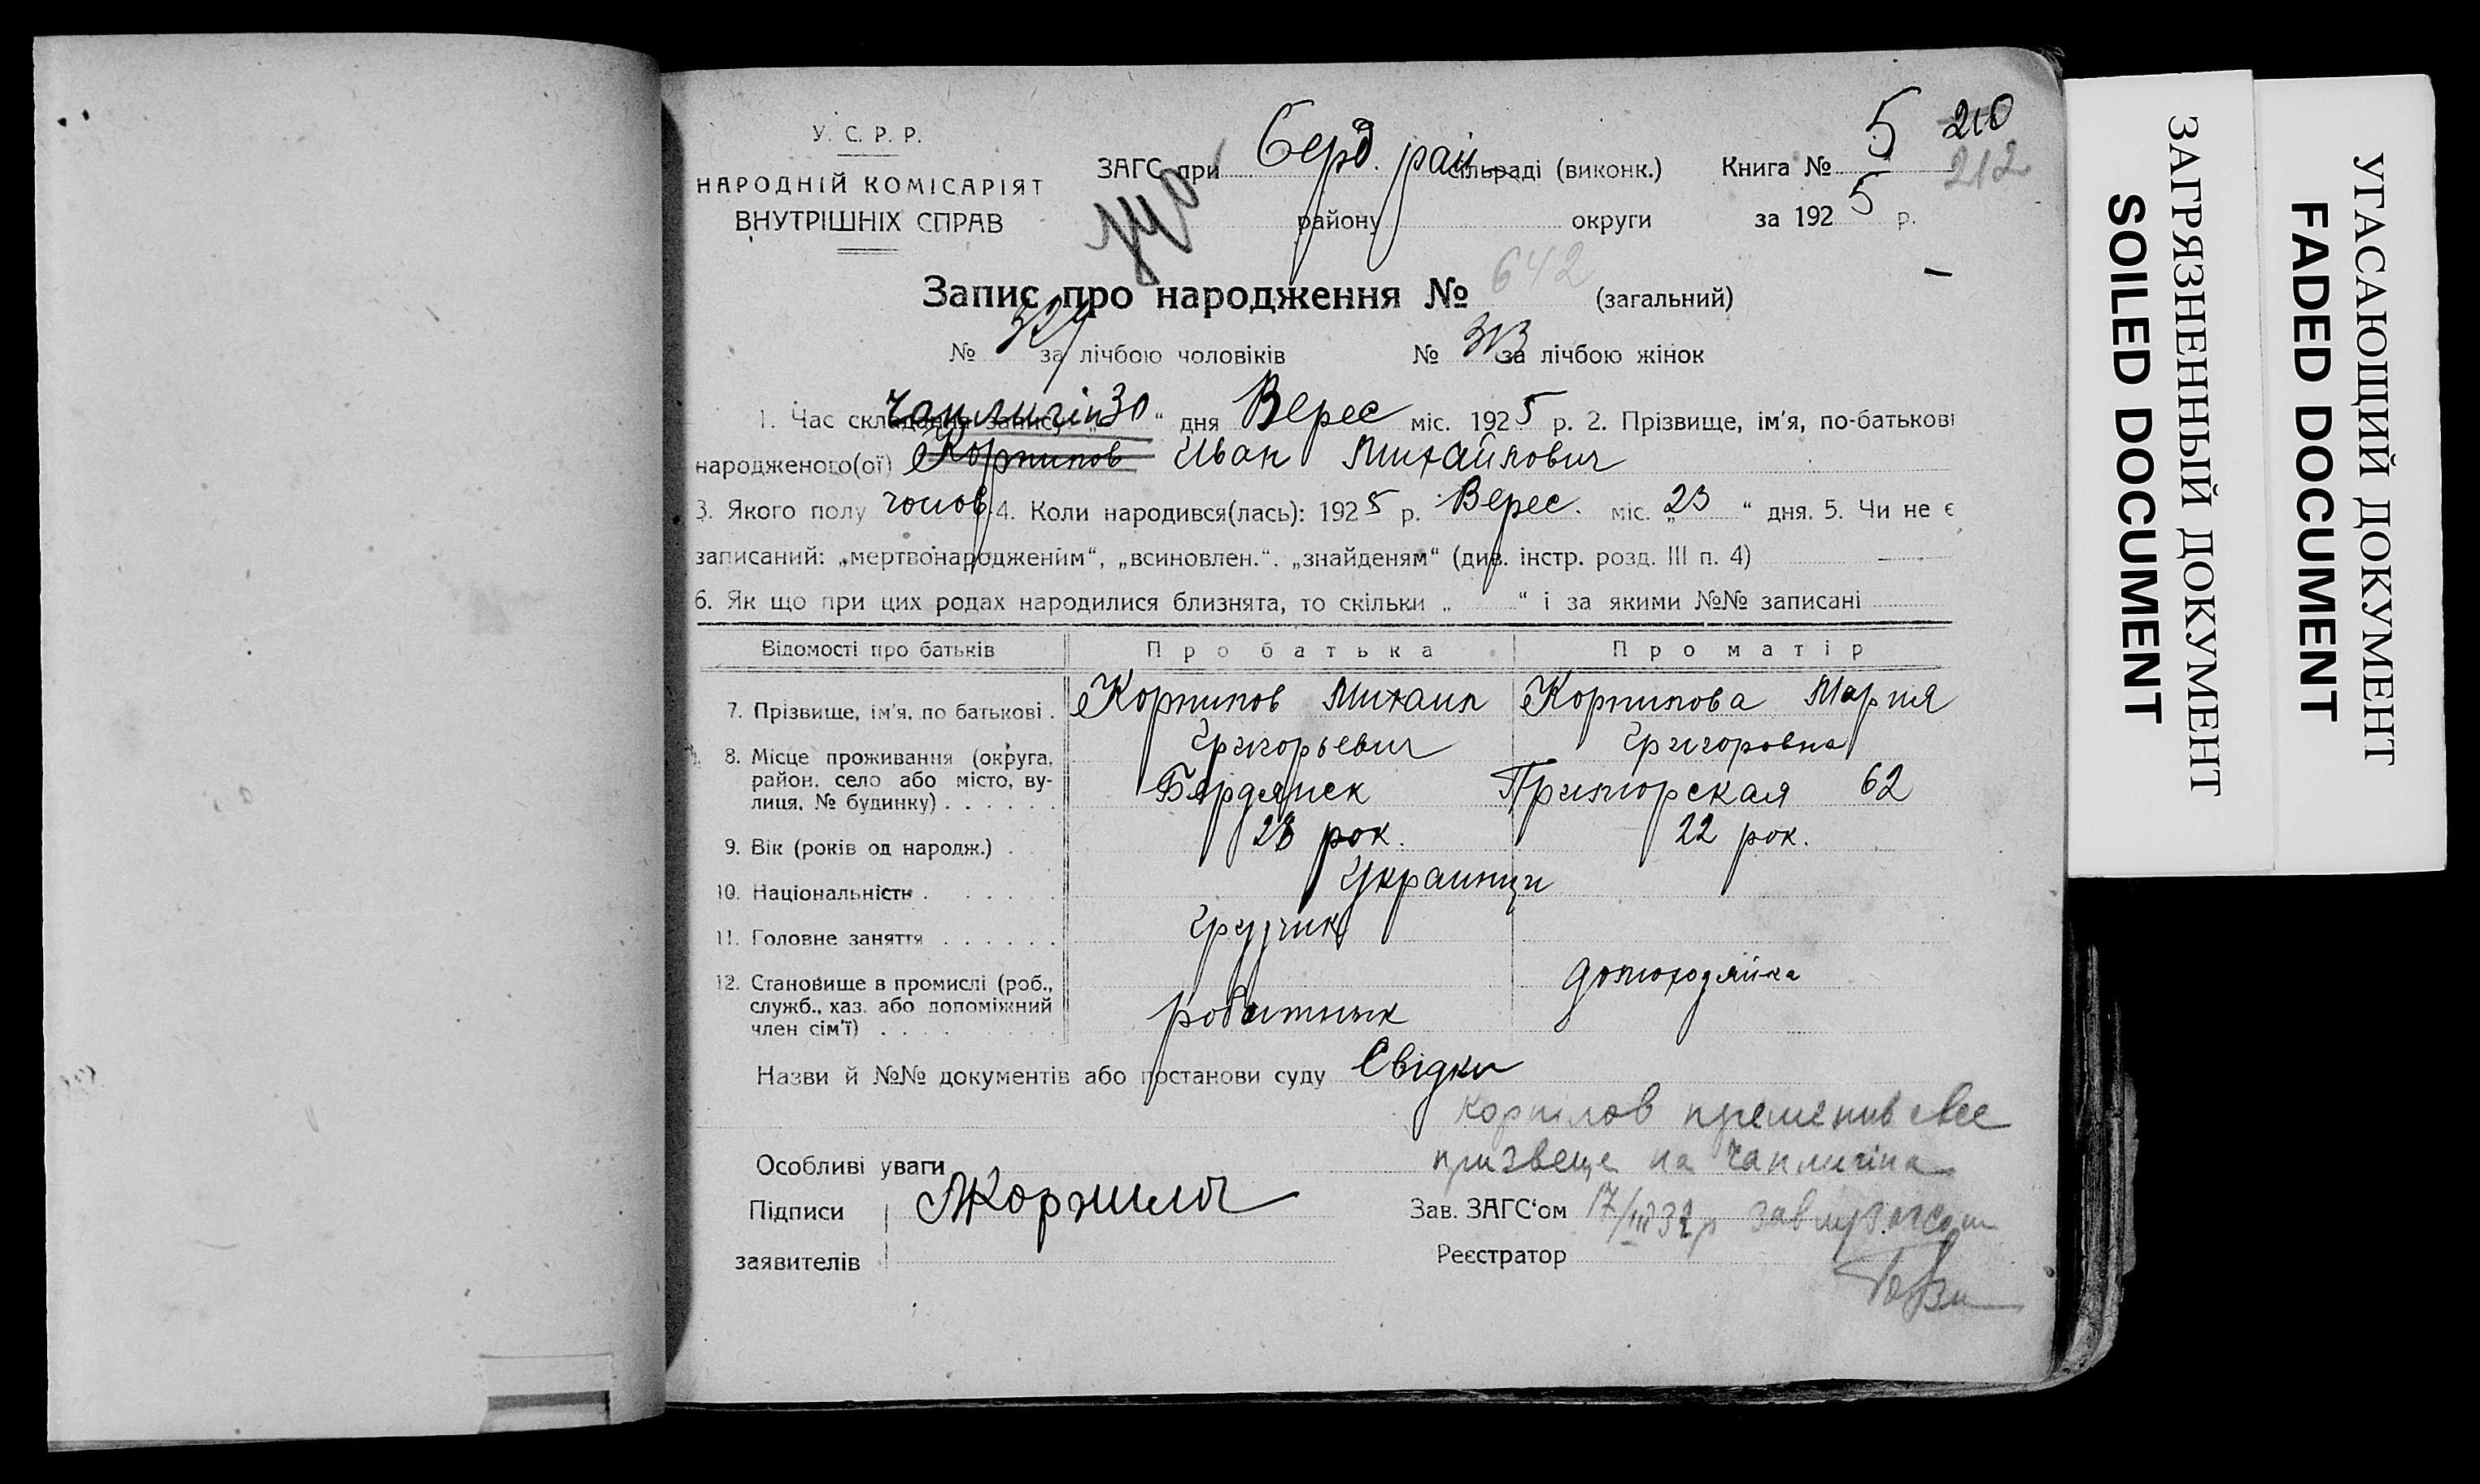 У. С. Р. Р.
НАРОДНІЙ КОМІСАРІЯТ
ВНУТРІШНІХ СПРАВ
ЗАГС при Берд. рай сільраді (виконк.) Книга № 5 210
212
району округи за 1925 р.
Запис про народження № 642 (загальний)
№ 329 за лічбою чоловіків № 313 за лічбою жінок
Чаплигін
1. Час складання запису „30“ дня Верес міс. 1925 р. 2. Прізвище, ім'я, по-батькові
народженого(ої) Корнилов Иван Михайлович
3. Якого полу чолов. 4. Коли народився(лась): 1925 р. Верес. міс. „23“ дня. 5. Чи не є
записаний: „мертвонародженим“, „всиновлен.“, „знайденям“ (див. інстр. розд. III п. 4)
6. Як що при цих родах народилися близнята, то скільки „ “ і за якими №№ записані
Відомості про батьків Про батька Про матір
7. Прізвище, ім'я, по батькові . Корнилов Михаил Корнилова Мария
Григорьевич Григоровна
8. Місце проживання (округа,
район, село або місто, ву-
лиця, № будинку) . . . . . . Бярдянск Приморская 62
9. Вік (років од народж.) . 28 рок. 22 рок.
10. Національність . . . . . Украинци
11. Головне заняття . . . . . . Грузчик
12. Становище в промислі (роб.,
служб., хаз. або допоміжний
член сім'ї) . . . . робитнык домохозяйка
Назви й №№ документів або постанови суду Свідки
Корнілов пременив свое
Особливі уваги призвеще на Чаплигіна
Підписи МКорнилов Зав. ЗАГС'ом 17/III 32р
заявителів Реєстратор
ЗАГРЯЗНЕННЫЙ ДОКУМЕНТ
SOILED DOCUMENT
УГАСАЮЩИЙ ДОКУМЕНТ
FADED DOCUMENT